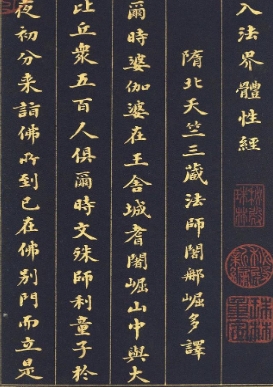 入法界體性經
隋北天竺三藏法師闍那崛多譯
爾時婆伽婆在王舍城耆闍崛山中與大
比丘衆五百人俱爾時文殊師利童子於
夜初分來詣佛所到已在佛別門而立是